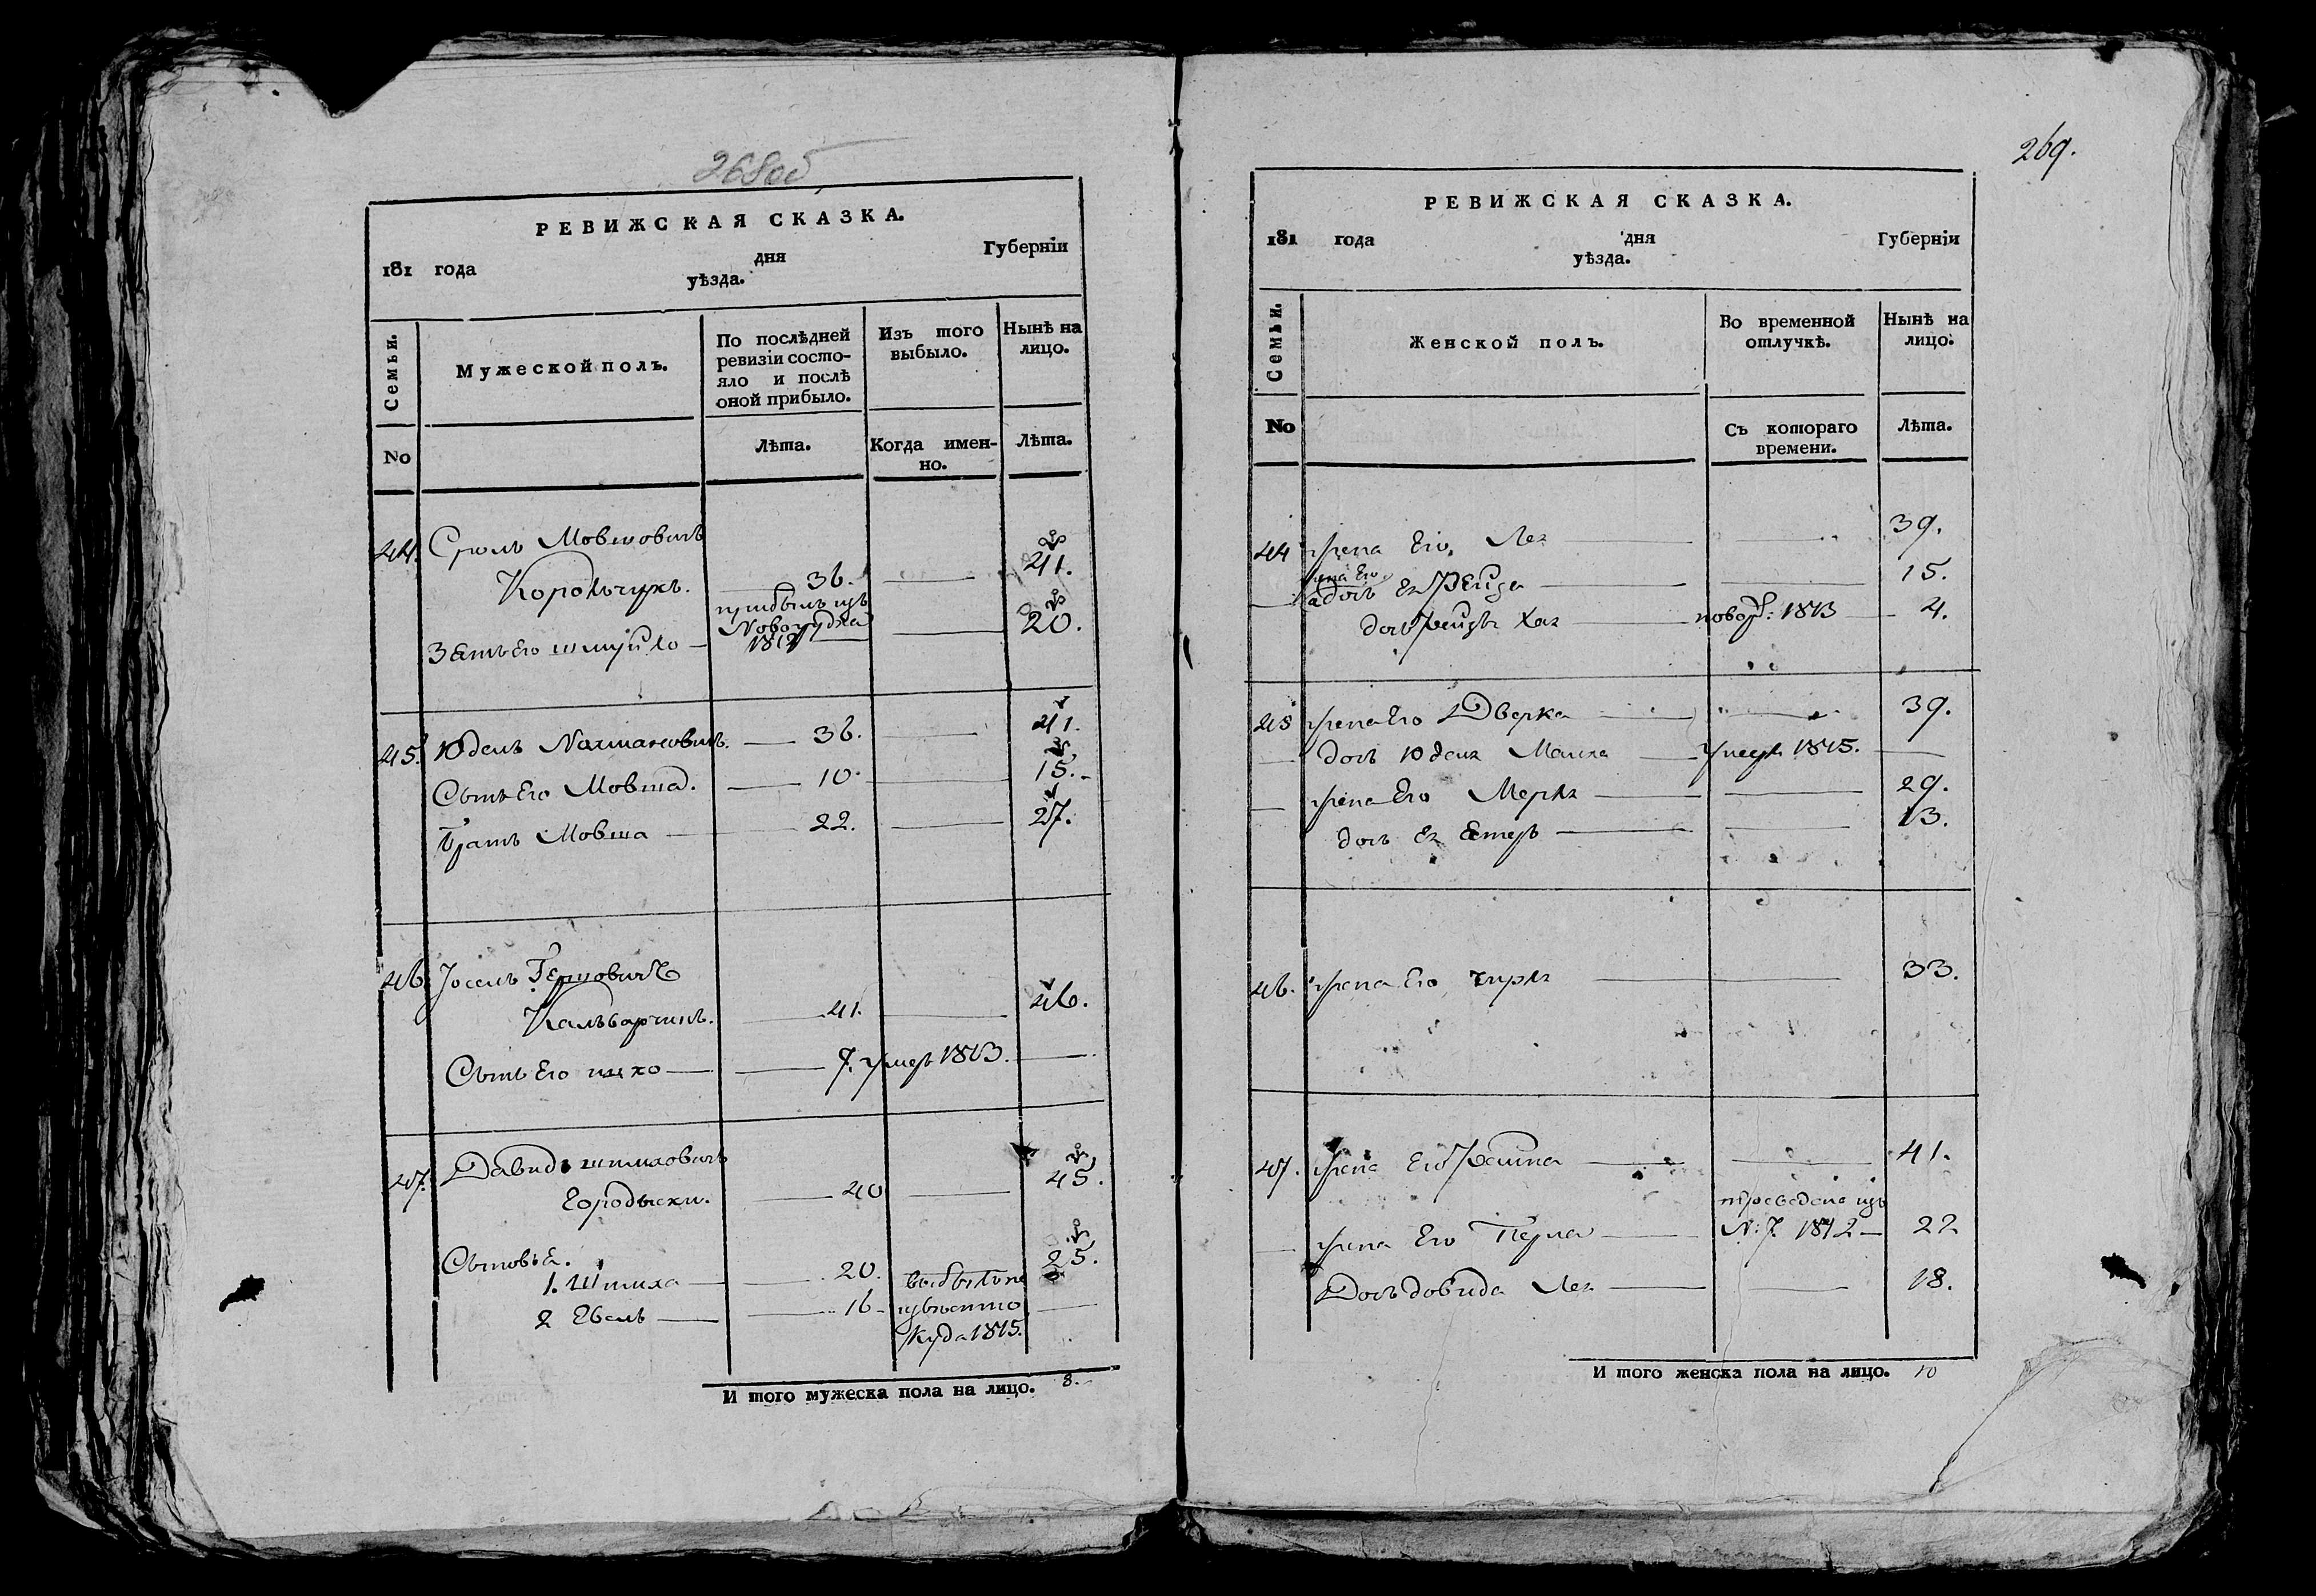 268об
РЕВИЖСКАЯ СКАЗКА.
181 года дня Губернiи
уѣзда.
Семьи.
Мужеской полъ.
По послѣдней ревизiи состо-
яло и послѣ
оной прибыло.
Изъ того
выбыло.
Нынѣ на
лицо.
No
Лѣта.
Когда имен-
но.
Лѣта.
44. Сроль Мовшовичъ
Корольчукъ. 36. 41.
прибылъ изъ
Зять Его шмуйло 1812 20.
45. Юдель Нахмановичъ. 36. 41.
Сынъ Его Мовша. 10. 15.
Братъ Мовша 22. 27.
46. Іосель Гершовичъ
Кальварчикъ. 41. 46.
Сынъ Его ицко 7. умеръ 1813.
47. Давидъ шпмховичъ
Городыски. 40 45.
Сыновья.
1. 20. 25.
2 Евель 16 выбылъ не
извѣстно
куда 1815.
И того мужеска пола на лицо. 8.
269.
РЕВИЖСКАЯ СКАЗКА.
181 года дня Губернiи
уѣзда.
Семьи.
Женской полъ.
Во временной
отлучкѣ.
Нынѣ на
лицо.
No
Съ котораго
времени.
Лѣта.
44 жена Его, Лея 39.
жена Его
дочь Ея Рейза 15.
дочь Рейзы Хая новор: 1813 4.
45 жена Его Дверка 39.
дочь Юделя Малка умерла 1815.
жена Его Мерля 29.
дочь Ея Естеръ 13.
46. жена Его 33.
47. жена Его Фейга 41.
преведена изъ
жена Его Перла N: 7. 1812 22
Дочь довида Лея 18.
И того женска пола на лицо. 10